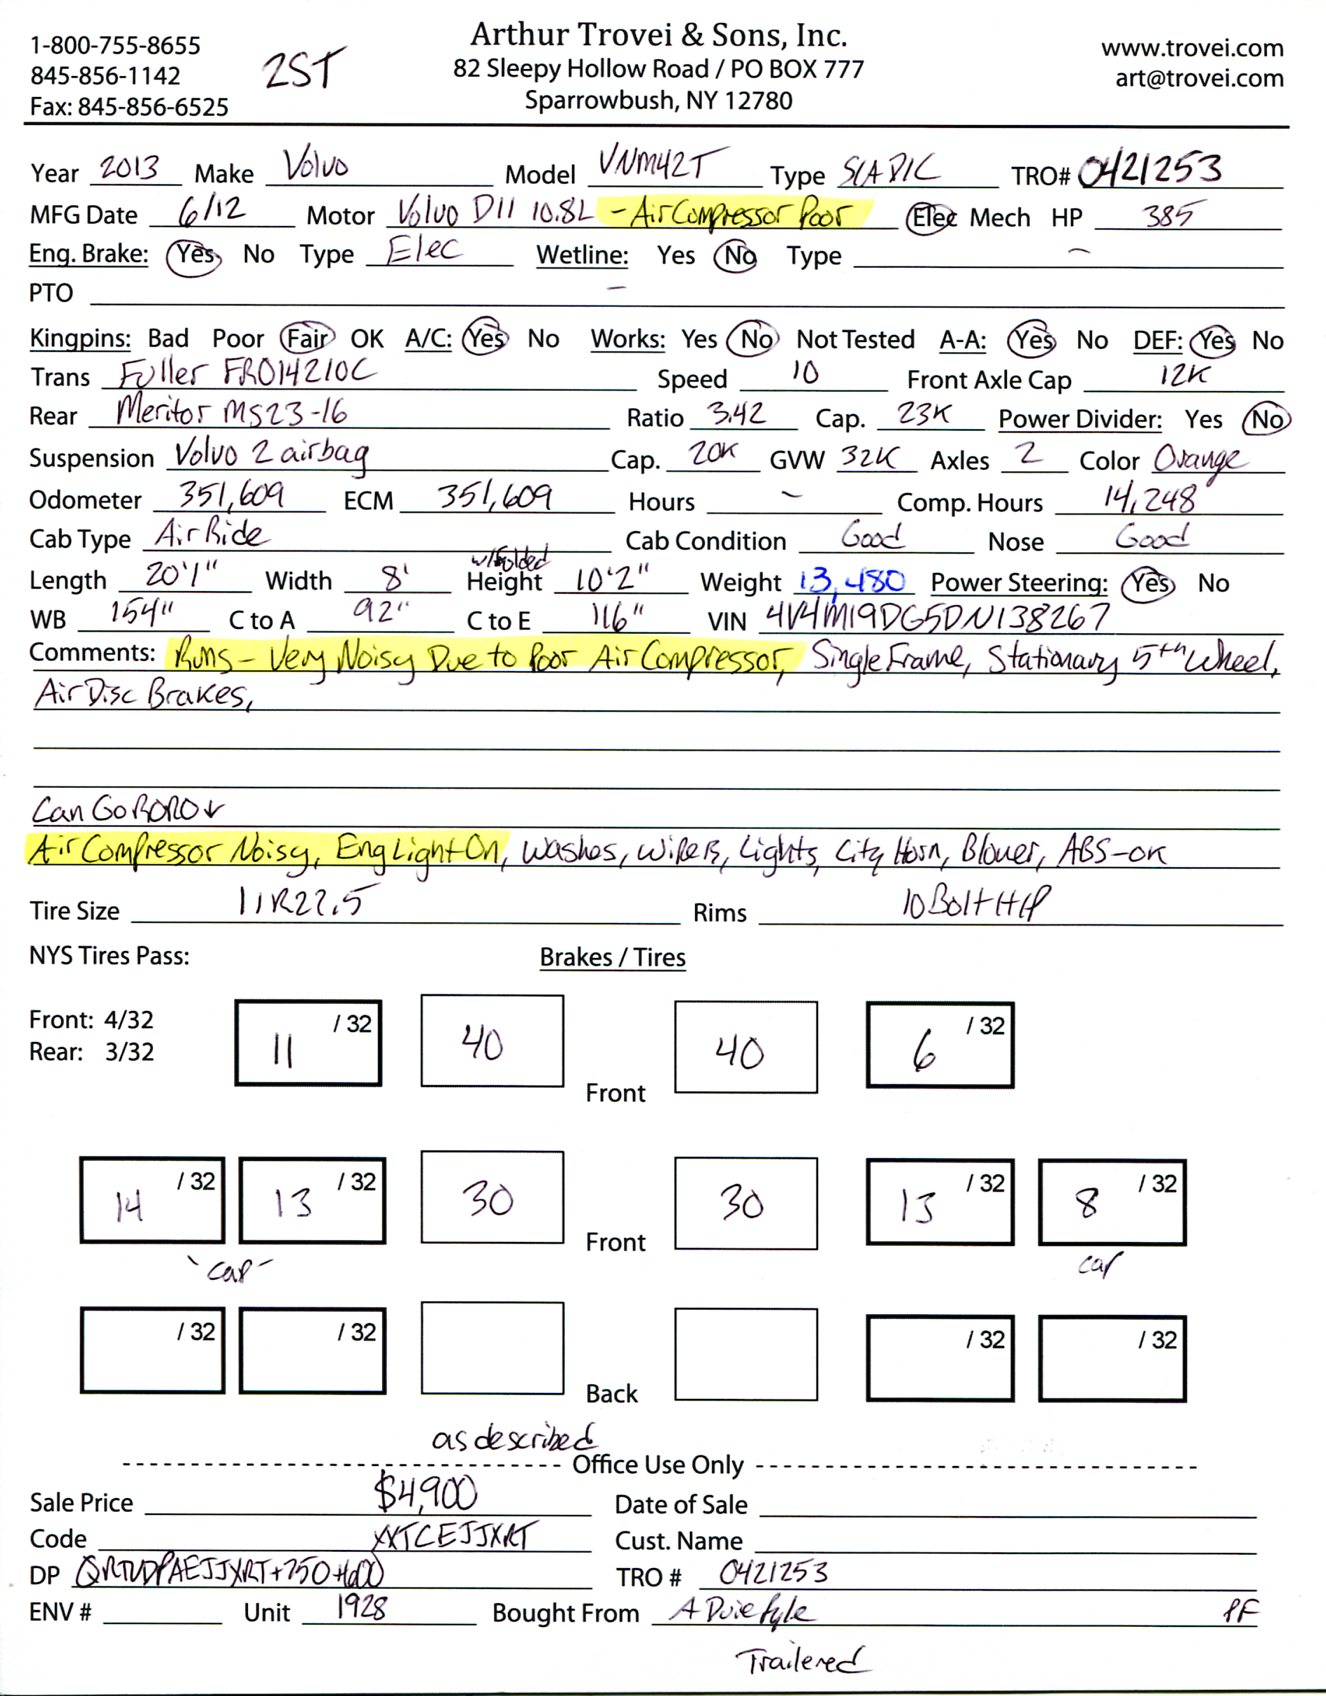 1-800-755-8655
845-856-1142
Fax: 845-856-6525
2ST
Arthur Trovei & Sons, Inc.
82 Sleepy Hollow Road / PO BOX 777
Sparrowbush, NY 12780
www.trovei.com
art@trovei.com
Year 2013 Make Volvo Model VNM42T Type S/A D/C TRO# 0421253
MFG Date 6/12 Motor Volvo D11 10.8L - Air Compressor Poor Elec Mech HP 385
Eng. Brake: Yes No Type Elec Wetline: Yes No Type -
PTO -
Kingpins: Bad Poor Fair OK A/C: Yes No Works: Yes No Not Tested A-A: Yes No DEF: Yes No
Trans Fuller FRO14210C Speed 10 Front Axle Cap 12K
Rear Meritor MS23-16 Ratio 3.42 Cap. 23K Power Divider: Yes No
Suspension Volvo 2 airbag Cap. 20K GVW 32K Axles 2 Color Orange
Odometer 351,609 ECM 351,609 Hours - Comp. Hours 14,248
Cab Type Air Ride Cab Condition Good Nose Good
Length 20'1" Width 8' w/Folded Height 10'2" Weight 13,480 Power Steering: Yes No
WB 154" C to A 92" C to E 116" VIN 4V4M19DG5DN138267
Comments: Runs - Very Noisy Due to Poor Air Compressor, Single Frame, Stationary 5th Wheel,
Air Disc Brakes,
Can Go RORO ↓
Air Compressor Noisy, Eng Light On, Washes, Wipers, Lights, City Horn, Blower, ABS-OK
Tire Size 11R22.5 Rims 10 Bolt HP
NYS Tires Pass: Brakes / Tires
Front: 4/32
Rear: 3/32
11 /32 40 Front 40 6 /32
14 /32 13 /32 30 Front 30 13 /32 8 /32
cap cap
/32 /32 Back /32 /32
as described
Office Use Only
Sale Price $4,900 Date of Sale
Code XXTCEJJXRT Cust. Name
DP QRTVDPAEJJXRT+750+600 TRO # 0421253
ENV # Unit 1928 Bought From A Duie Pyle PF
Trailered